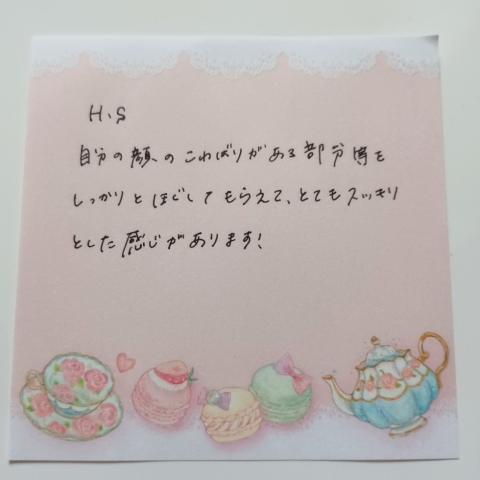 H.S
自分の顔のこわばりがある部分等を
しっかりとほぐしてもらえて、とてもスッキリ
とした感じがあります!